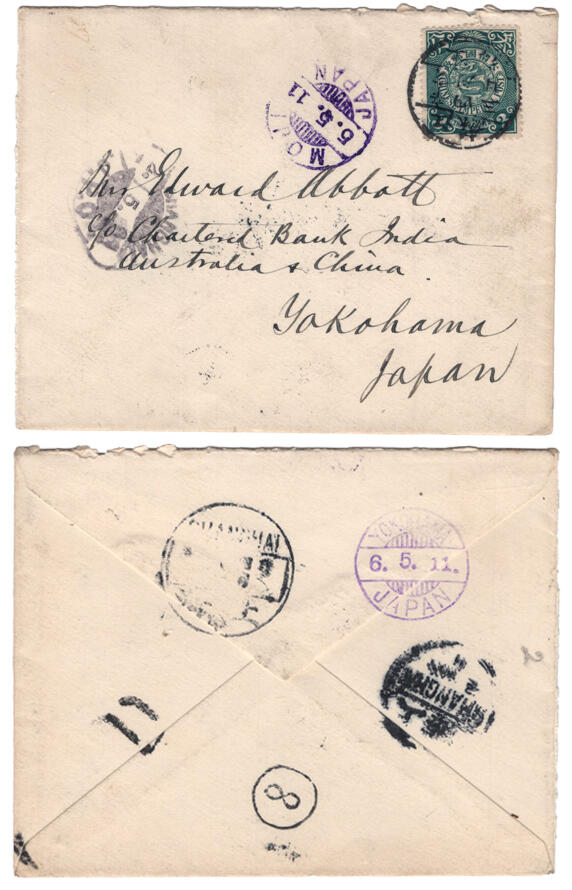 MOJI
5.5.11
JAPAN
Mrs Edward Abbott
c/o Chartered Bank India
Australia & China
Yokohama
Japan
SHANGHAI
YOKOHAMA
6. 5. 11.
JAPAN
SHANGHAI
8
2